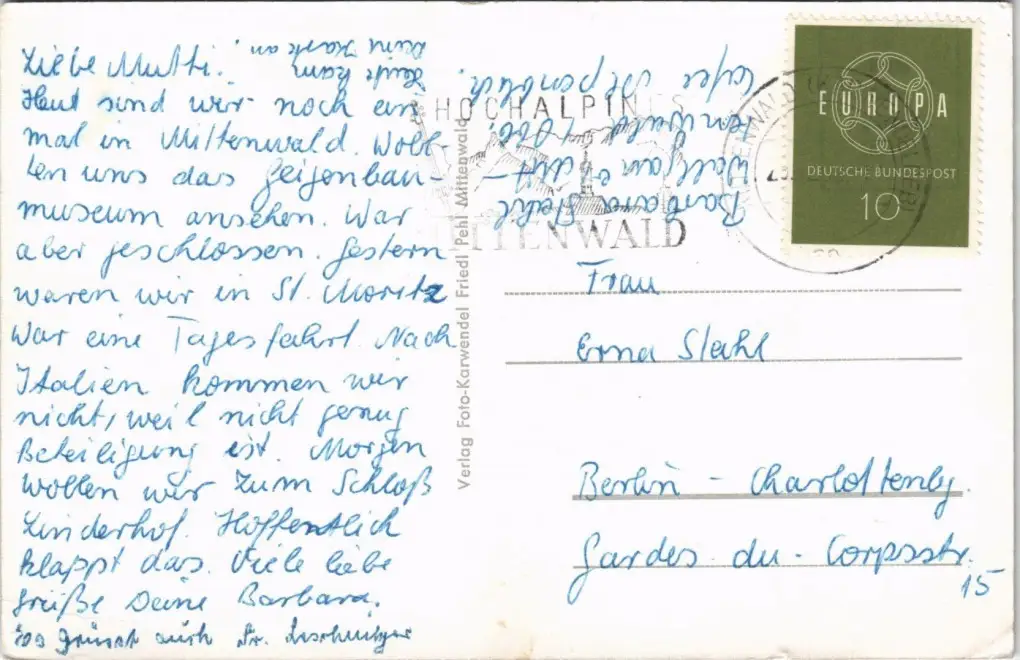 Liebe Mutti.
Heut sind wir noch ein
mal in Mittenwald. Woll-
ten uns das Geigenbau-
museum ansehen. War
aber geschlossen. Gestern
waren wir in St. Moritz
war eine Tagesfahrt. Nach
Italien kommen wir
nicht, weil nicht genug
Beteiligung ist. Morgen
wollen wir zum Schloß
Linderhof. Hoffentlich
klappt das. Viele liebe
Grüße Deine Barbara.
Grüsst auch Dr.
Heute kam
Deine Karte an.
Verlag Foto-Karwendel Friedl Pehl Mittenwald
HOCHALPINES
MITTENWALD
Barbara Stahl
Wallgau
Cafe Alpenblick
EUROPA
DEUTSCHE BUNDESPOST
10
Frau
Erna Stahl
Berlin - Charlottenbg.
Gardes-du-Corpsstr.
15